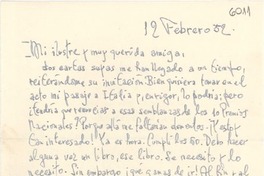 6011
12 Febrero 52.
Mi ilustre y muy querida amiga:
dos cartas suyas me han llegado a un tiempo,
reiterándome su invitación. Bien quisiera tomar en el
acto mi pasaje a Italia y, en rigor, lo podría; pero
tendría que renunciar a esa semblanza de los 40 Premios
Nacionales! Porque allí me faltarían
tan interesado! Ya es hora. Cumplí los 60. Debo hacer
alguna vez un libro, ese libro. Se necesita y lo
necesito. Sin embargo ¡qué ganas de ir! Al fin y al